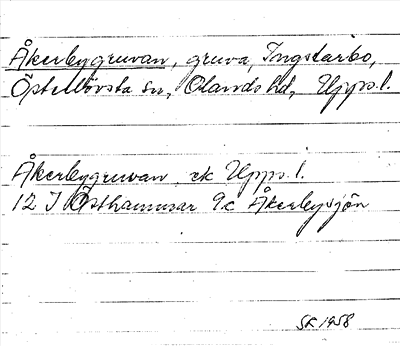 Åkerbygruvan, gruva, Ingstarbo,
Östellövsta sn, Olands hd, Upps.l.
Åkerbygruvan ek Upps.l.
12 I Östhammar 9c Åkerbysjön
SK 1958